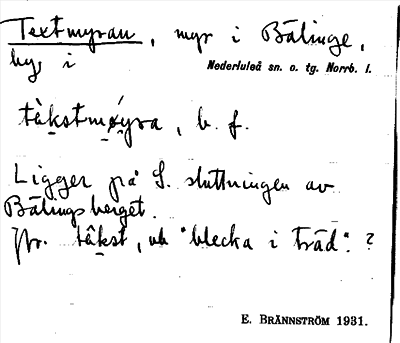 Textmyran, myr i Bälinge,
by i Nederluleå sn. o. tg. Norrb. l.
tä̀kstmǿyra, b. f.
Ligger på S. sluttningen av
Bälingsberget.
Jfr. tä̂kst, "blecka i träd". ?
E. BRÄNNSTRÖM 1931.